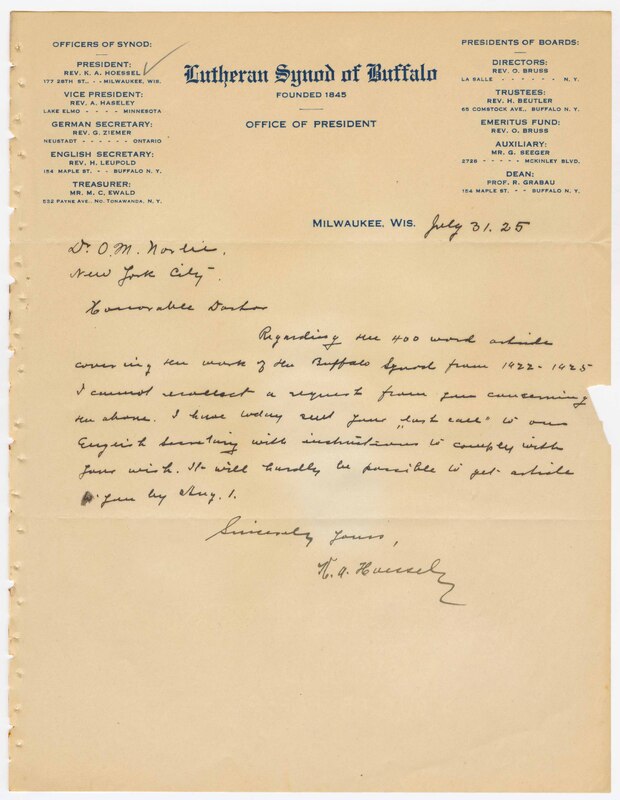 OFFICERS OF SYNOD:
PRESIDENT:
REV. K. A. HOESSEL
177 28TH ST., - - MILWAUKEE, WIS.
VICE PRESIDENT:
REV. A. HASELEY
LAKE ELMO - - - - - MINNESOTA
GERMAN SECRETARY:
REV. G. ZIEMER
NEUSTADT - - - - - - ONTARIO
ENGLISH SECRETARY:
REV. H. LEUPOLD
154 MAPLE ST. - - BUFFALO N. Y.
TREASURER:
MR. M. C. EWALD
532 PAYNE AVE., NO. TONAWANDA, N. Y.
Lutheran Synod of Buffalo
FOUNDED 1845
OFFICE OF PRESIDENT
PRESIDENTS OF BOARDS:
DIRECTORS:
REV. O. BRUSS
LA SALLE - - - - - - - N. Y.
TRUSTEES:
REV. H. BEUTLER
65 COMSTOCK AVE., BUFFALO N. Y.
EMERITUS FUND:
REV. O. BRUSS
AUXILIARY:
MR. G. SEEGER
2726 - - - - - MCKINLEY BLVD.
DEAN:
PROF. R. GRABAU
154 MAPLE ST. - - BUFFALO N. Y.
MILWAUKEE, WIS. July 31. 25
Dr. O. M. Norlie,
New York City.
Honorable Doctor
Regarding the 400 word article
covering the work of the Buffalo Synod from 1922-1925
I cannot recollect a request from you concerning
the above. I have today sent your „last call" to our
English Secretary with instructions to comply with
your wish. It will hardly be possible to get article
to you by Aug. 1.
Sincerely yours,
K. A. Hoessel